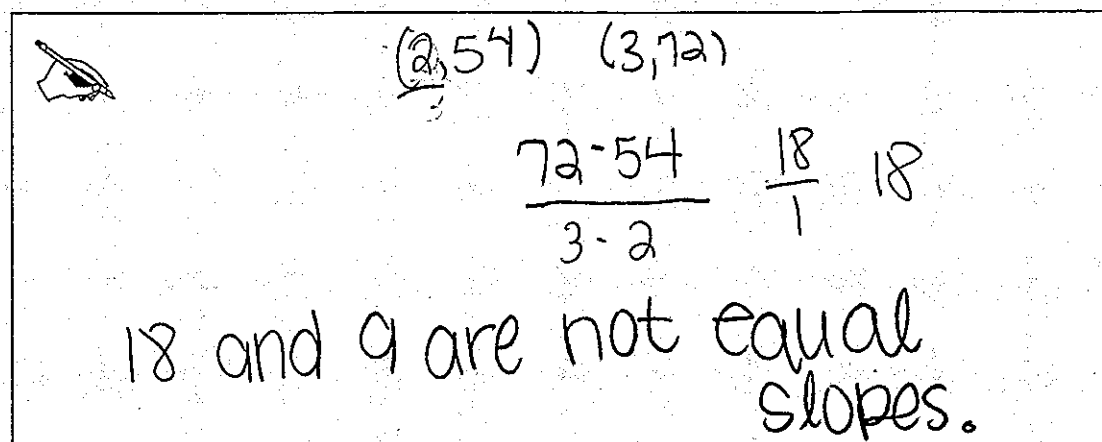 (2,54) (3,72)
72-54 18 18
3-2 1
18 and 9 are not equal
slopes.